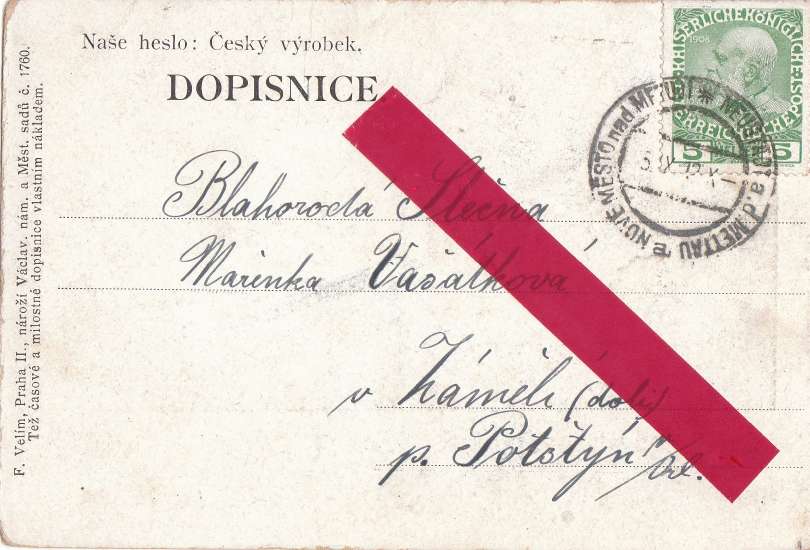 Naše heslo: Český výrobek.
DOPISNICE
KAISERLICHE KÖNIGLICHE ÖSTERREICHISCHE POST
1908
5 5
NOVÉ MĚSTO nad METUJÍ * NEUSTADT a.d. METTAU
Blahorodá Slečna
Marinka Vašátkova
v Záměli (dolí)
p. Potštýn
F. Velím, Praha II., nároží Václav. nám. a Měst. sadů č. 1760.
Též časové a milostné dopisnice vlastním nákladem.